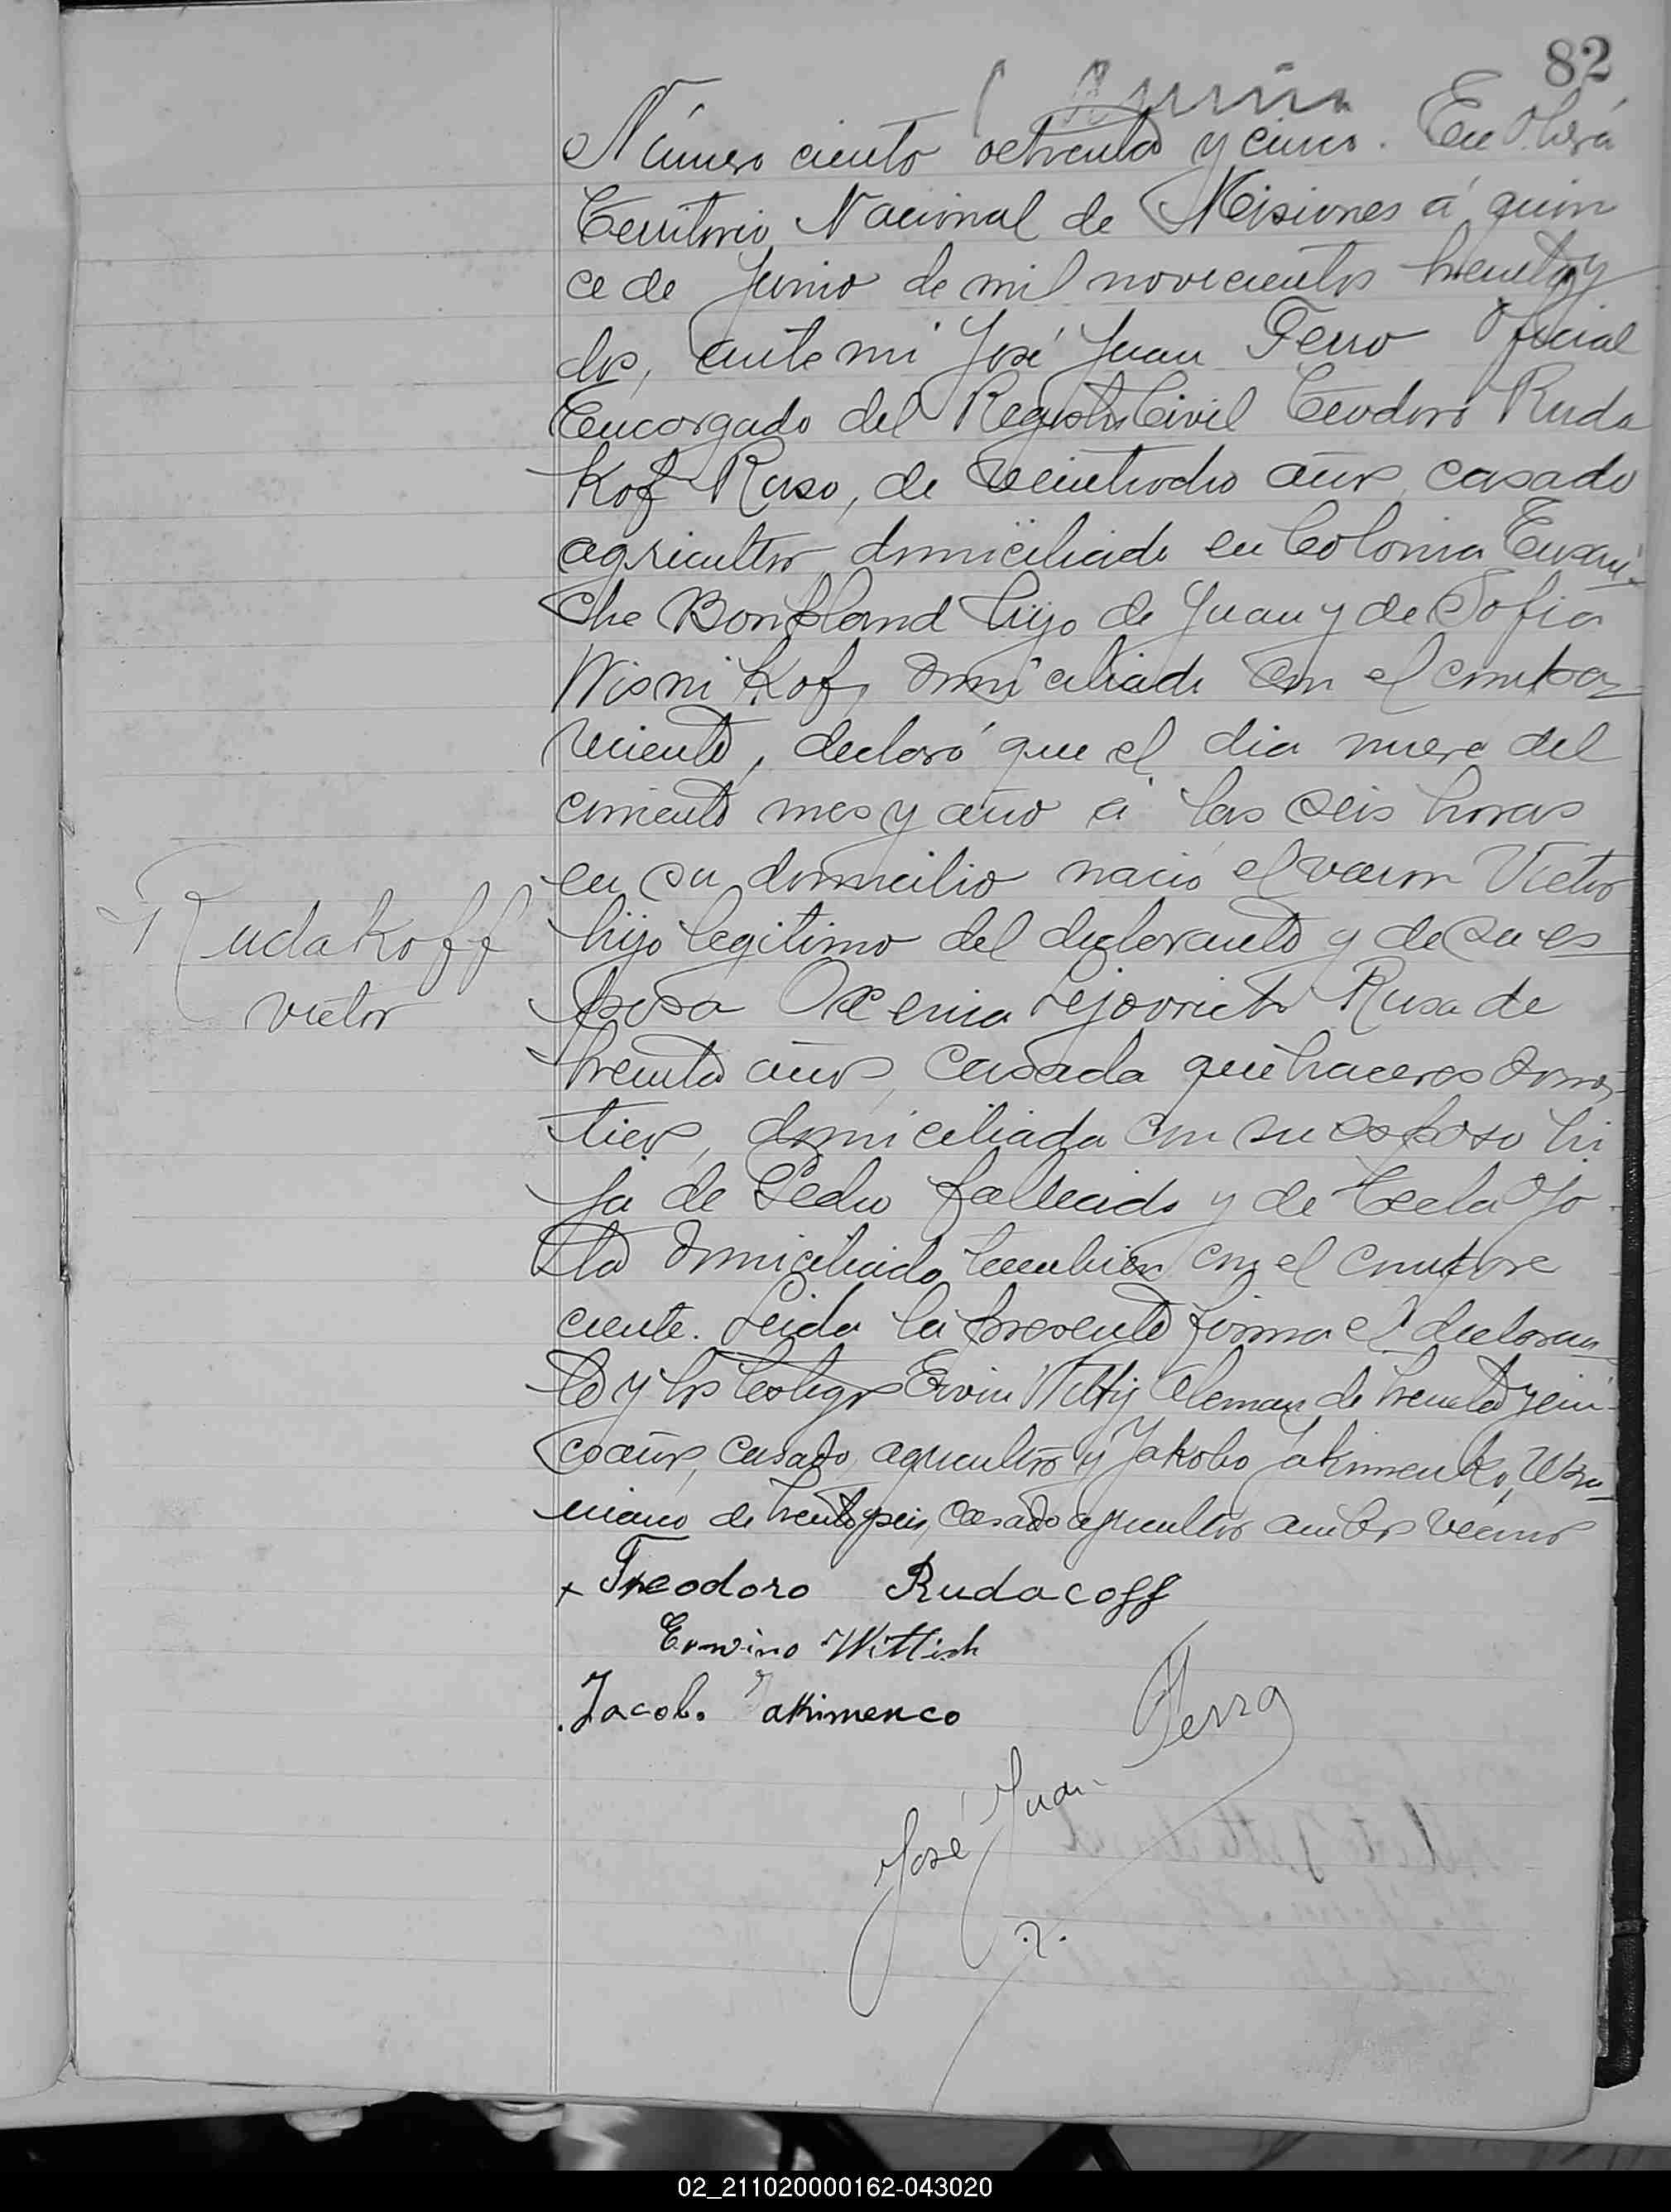 82
Número ciento ochenta y cinco. En Oberá
Territorio Nacional de Misiones á quin
ce de Junio de mil novecientos treinta y
dos, ante mi José Juan Ferro Oficial
Encargado del Registro Civil Teodoro Ruda
Kof Ruso, de veintiocho años, casado
agricultor domiciliado en Colonia
che Bonpland hijo de Juan y de Sofia
Wisni Kof, domiciliado con el compa
reciente, declaró que el dia nueve del
corriente mes y año á las seis horas
en su domicilio nació el varon Victor
Rudakoff
Victor
hijo legitimo del declarante y de su es
posa Oxenia Rusa de
treinta años, casada quehaceres domes
ticos, domiciliada con su esposo hi
ja de Pedro fallecido y de Tecla
domiciliada tambien con el compare
ciente. Leida la presente firma el declaran
te y los testigos Ervin Aleman de treinta y cin
co años, casado, agricultor y Jakobo Jakimenko, Ukra
niano de treinta y seis, casado agricultor ambos vecinos
x Theodoro Rudacoff
Erwino Wittich
Jacob. Jakimenco
José Juan Ferro
02_211020000162-043020